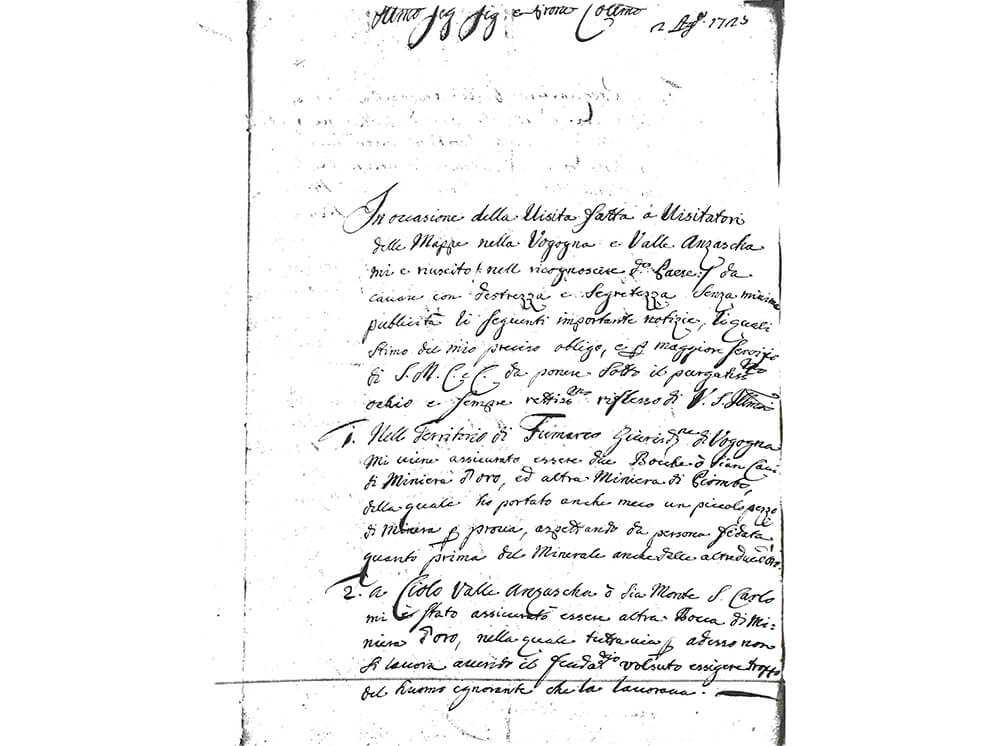 Illmo Sig Sig e Prone Colmo
2 Ago. 1723
In occasione della Visita fatta a Visitatori
delle Mappe nella Vogogna e Valle Anzascha
mi e riuscito nell ricognoscere do. Paese da
cavare con destrezza e segretezza senza minima
publicità li seguenti importante notizie, li quali
stimo del mio preciso obligo, e p maggiore servizio
di S. M. C. e C. da ponere sotto il purgatissmo
ochio e sempre rettissmo riflesso di V. S. Illma
1. Nell Territorio di Fumarco Giurisdne di Vogogna
mi viene assicurato essere due Bocche ò sian Cavi
di Miniera d'oro, ed altra Miniera di Piombo,
della quale ho portato anche meco un piccolo pezzo
di Minera p prova, aspettando da persona fedata
quanto prima del Minerale anche delle altre due
2. A Ciolo Valle Anzascha ò sia Monte S. Carlo
mi è stato assicurato essere altra Bocca di Mi-
niera d'oro, nella quale tuttavia p adesso non
si lavora avendo il feudatrio volsuto essigere troppo
del huomo ignorante che la lavorava.